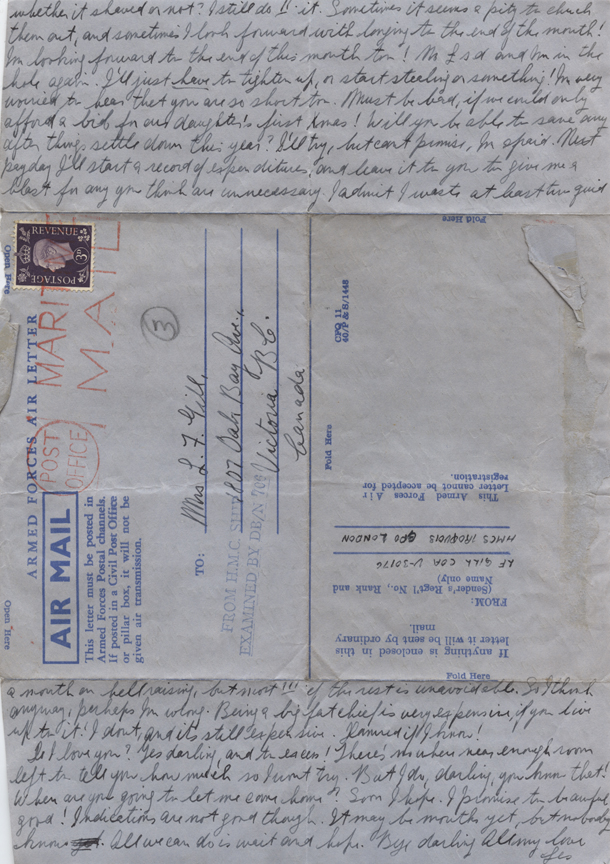 whether it showed or not? I still do it. Sometimes it seems a pity to chuck
them out, and sometimes I look forward with longing to the end of the month!
I'm looking forward to the end of this month too! No £sd and I'm in the
hole again. I'll just have to tighten up, or start stealing or something! I'm very
worried to hear that you are so short too. Must be bad, if we could only
afford a bib for our daughter's first Xmas! Will you be able to save any
after things settle down this year? I'll try, but can't promise, I'm afraid. Next
payday I'll start a record of expenditures, and leave it to you to give me a
blast for any you think are unnecessary. I admit I waste at least two quid
Open Here
REVENUE
3D
POSTAGE
MARITIME
MAIL
POST
OFFICE
3
ARMED FORCES AIR LETTER
AIR MAIL
This letter must be posted in
Armed Forces Postal channels.
if posted in a Civil Post Office
or pillar box, it will not be
given air transmission.
Open Here
TO:
Mrs L. F. Gill,
1807 Oak Bay Ave.,
Victoria, B.C.
Canada
FROM H.M.C. SHIP
EXAMINED BY DB/N 709
Fold Here
CFQ 11
40/P & S/1448
Fold Here
This Armed Forces Air
Letter cannot be accepted for
registration.
HMCS IROQUOIS GPO LONDON
LF GILL COA V-50176
(Sender's Regt'l No., and Rank and
Name only)
FROM:
If anything is enclosed in this
letter it will be sent by ordinary
mail.
Fold Here
a month on hellraising, but most!!! of the rest is unavoidable. So I think
anyway; perhaps I'm wrong. Being a big fat chief is very expensive, if you live
up to it. I don't, and it's still expensive. Damned if I know!
Do I love you? Yes darling, and to excess! There's nowhere near enough room
left to tell you how much so I won't try. But I do, darling, you know that!
When are you going to let me come home? Soon I hope. I promise to be awful
good! Indications are not good though. It may be months yet, but nobody
knows. All we can do is wait and hope. Bye darling All my love
Les